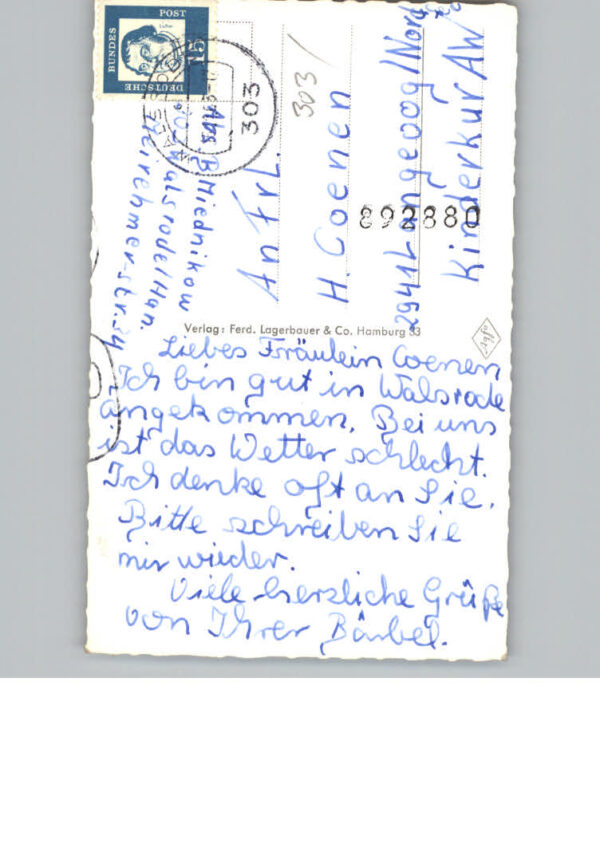 DEUTSCHE
BUNDES
POST
15
303
303
B Miednikow
Walsrode/Han.
An Frl.
H. Coenen
2941 Langeoog/Nord
Kinderkur AW
892880
Verlag: Ferd. Lagerbauer & Co. Hamburg 33
Agfa
Liebes Fräulein Coenen
Ich bin gut in Walsrode
angekommen. Bei uns
ist das Wetter schlecht.
Ich denke oft an Sie.
Bitte schreiben Sie
mir wieder.
Viele herzliche Grüße
von Ihrer Bärbel.